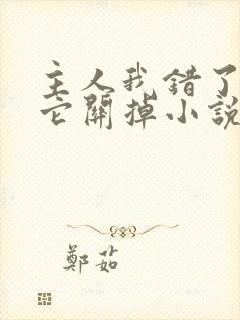 主人我错了
它關掉小說
鄭茹